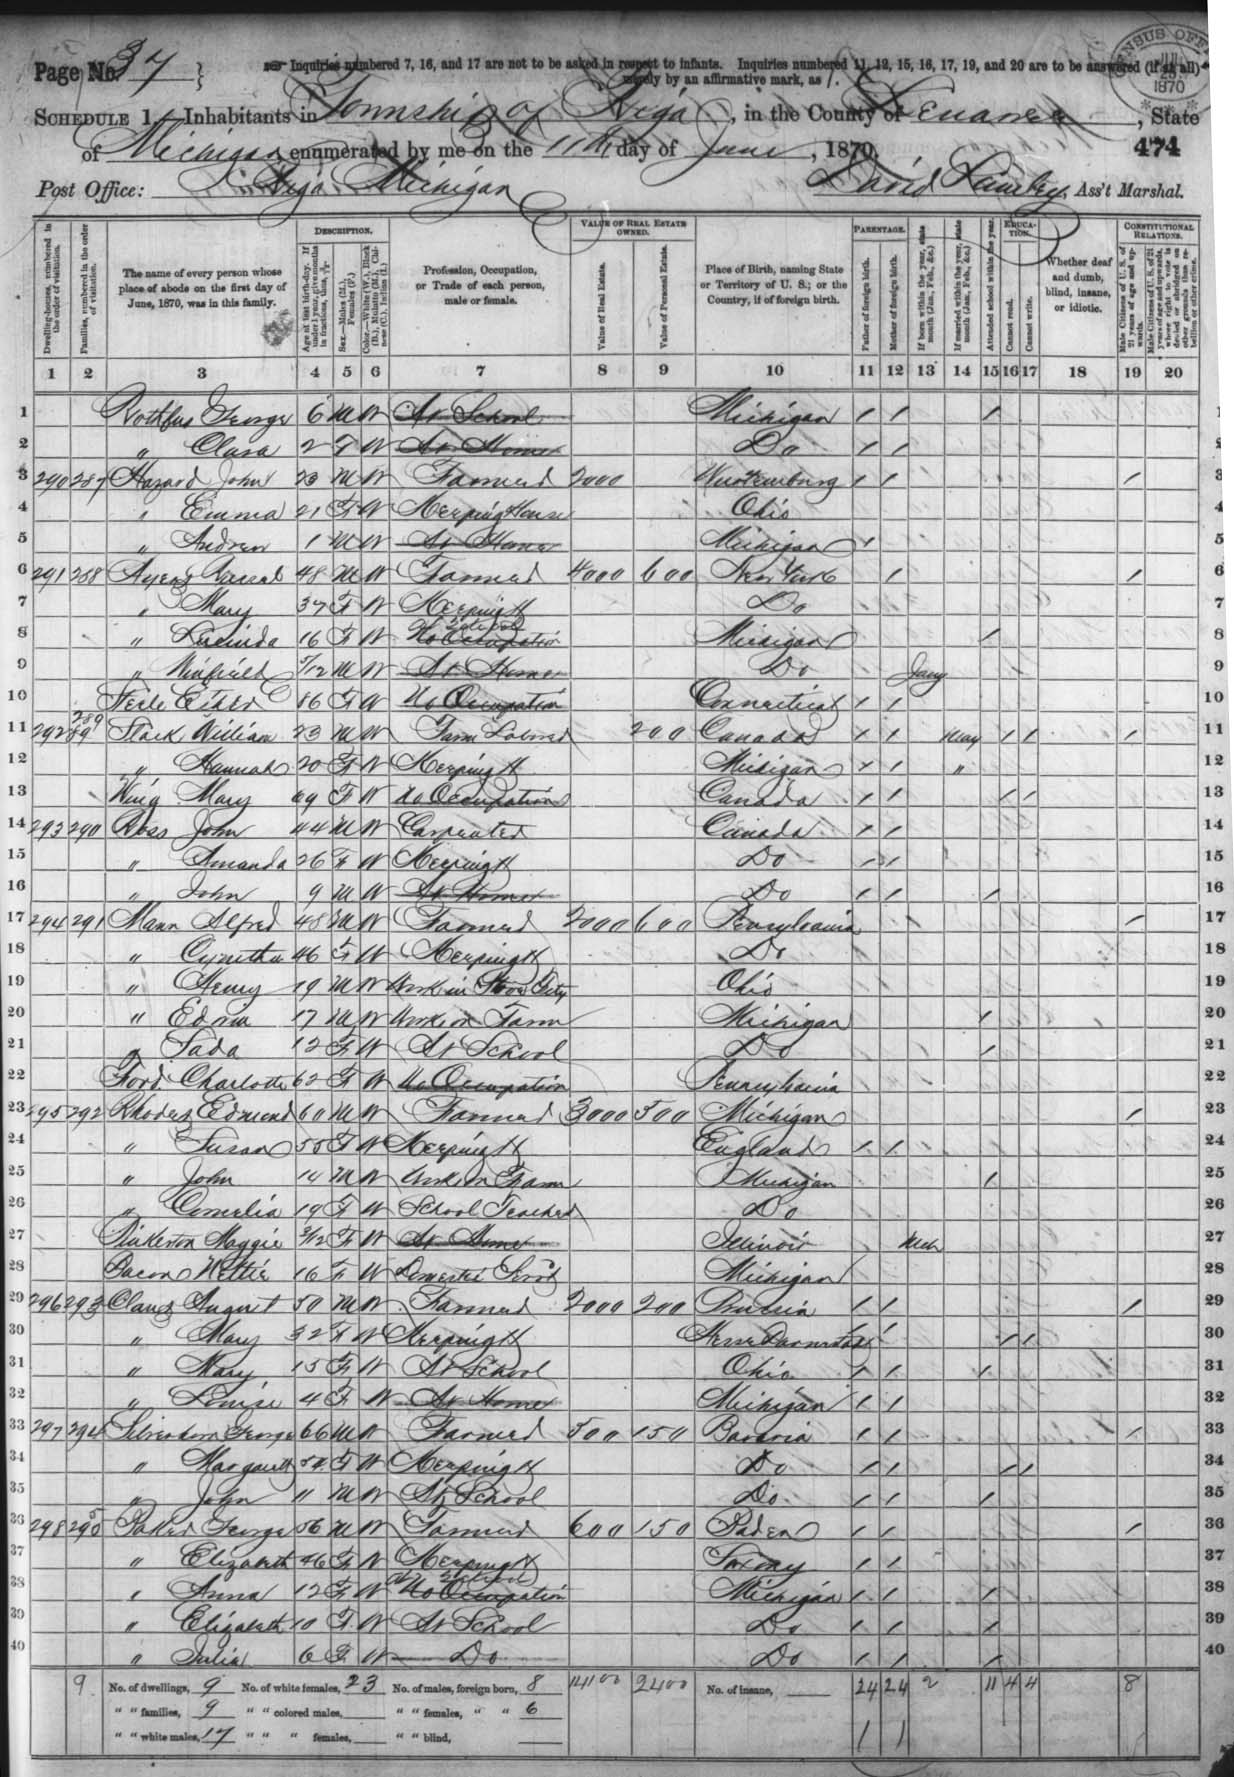 Page No. 37
Inquiries numbered 7, 16, and 17 are not to be asked in respect to infants. Inquiries numbered 11, 12, 15, 16, 17, 19, and 20 are to be answered (if at all)
merely by an affirmative mark, as /.
CENSUS OFFICE 1870
SCHEDULE 1.—Inhabitants in Township of Riga, in the County of Lenawee, State
of Michigan enumerated by me on the 11th day of June, 1870.
474
Post Office: Riga Michigan
David Ass't Marshal.
Dwelling-houses, numbered in the order of visitation.
Families, numbered in the order of visitation.
The name of every person whose place of abode on the first day of June, 1870, was in this family.
DESCRIPTION.
Age at last birth-day. If under 1 year, give months in fractions, thus, 3/12
Sex.—Males (M.), Females (F.)
Color.—White (W.), Black (B.), Mulatto (M.), Chinese (C.), Indian (I.)
Profession, Occupation, or Trade of each person, male or female.
VALUE OF REAL ESTATE OWNED.
Value of Real Estate.
Value of Personal Estate.
Place of Birth, naming State or Territory of U. S.; or the Country, if of foreign birth.
PARENTAGE.
Father of foreign birth.
Mother of foreign birth.
If born within the year, state month (Jan., Feb., &c.)
If married within the year, state month (Jan., Feb., &c.)
Attended school within the year.
EDUCATION.
Cannot read.
Cannot write.
Whether deaf and dumb, blind, insane, or idiotic.
CONSTITUTIONAL RELATIONS.
Male Citizens of U. S. of 21 years of age and upwards.
Male Citizens of U. S. of 21 years of age and upwards, whose right to vote is denied or abridged on other grounds than rebellion or other crime.
1 2 3 4 5 6 7 8 9 10 11 12 13 14 15 16 17 18 19 20
1 Rothfus George 6 M W At School Michigan / / / 1
2 " Clara 2 F W At Home Do / / 2
3 290 287 Hazard John 23 M W Farmer 2000 Wurtemburg / / / 3
4 " Emma 21 F W Keeping House Ohio 4
5 " Andrew 1 M W At Home Michigan / 5
6 291 288 Ayers 48 M W Farmer 4000 600 New York / / 6
7 " Mary 37 F W Keeping H Do 7
8 " Lucinda 16 F W No Occupation At School Michigan / 8
9 " Winfield 5/12 M W At Home Do Jany 9
10 Esther 86 F W No Occupation Connecticut / / 10
11 292 289 Stark William 23 M W Farm Laborer 200 Canada / / May / / / 11
12 " Hannah 20 F W Keeping H Michigan / / " 12
13 King Mary 69 F W No Occupation Canada / / / / 13
14 293 290 Ross John 44 M W Carpenter Canada / / 14
15 " Amanda 26 F W Keeping H Do / / 15
16 " John 9 M W At Home Do / / / 16
17 294 291 Mann Alfred 48 M W Farmer 2000 600 Pensylvania / 17
18 " Cyntha 46 F W Keeping H Do 18
19 " Henry 19 M W Work in Ohio 19
20 " Edwin 17 M W Work on Farm Michigan / 20
21 " Sada 12 F W At School Do / 21
22 Ford Charlotte 62 F W No Occupation Pennsylvania 22
23 295 292 Rhodes Edmund 60 M W Farmer 3000 500 Michigan / 23
24 " Susan 55 F W Keeping H England / / 24
25 " John 14 M W Work on Farm Michigan / 25
26 " Cornelia 19 F W School Teacher Do 26
27 Pinkerton Maggie 3/12 F W At Home Illinois Mch 27
28 Bacon Nettie 16 F W Domestic Servt Michigan 28
29 296 293 Claus August 50 M W Farmer 2000 200 Prussia / / / 29
30 " Mary 32 F W Keeping H Hesse Darmstadt / / / / 30
31 " Mary 15 F W At School Ohio / / / 31
32 " Louise 4 F W At Home Michigan / / 32
33 297 294 Silverhorn George 66 M W Farmer 500 150 Bavaria / / / 33
34 " Margarett 54 F W Keeping H Do / / / / 34
35 " John 11 M W At School Do / / / 35
36 298 295 Baker George 56 M W Farmer 600 150 Baden / / / 36
37 " Elizabeth 46 F W Keeping H Saxony / / 37
38 " Anna 12 F W No Occupation At School Michigan / / / 38
39 " Elizabeth 10 F W At School Do / / / 39
40 " Julia 6 F W Do Do / / / 40
9 No. of dwellings, 9 No. of white females, 23 No. of males, foreign born, 8 14100 2400 No. of insane, 24 24 2 11 4 4 8
" " families, 9 " " colored males, " " females, " " 6
" " white males, 17 " " " females, " " blind,